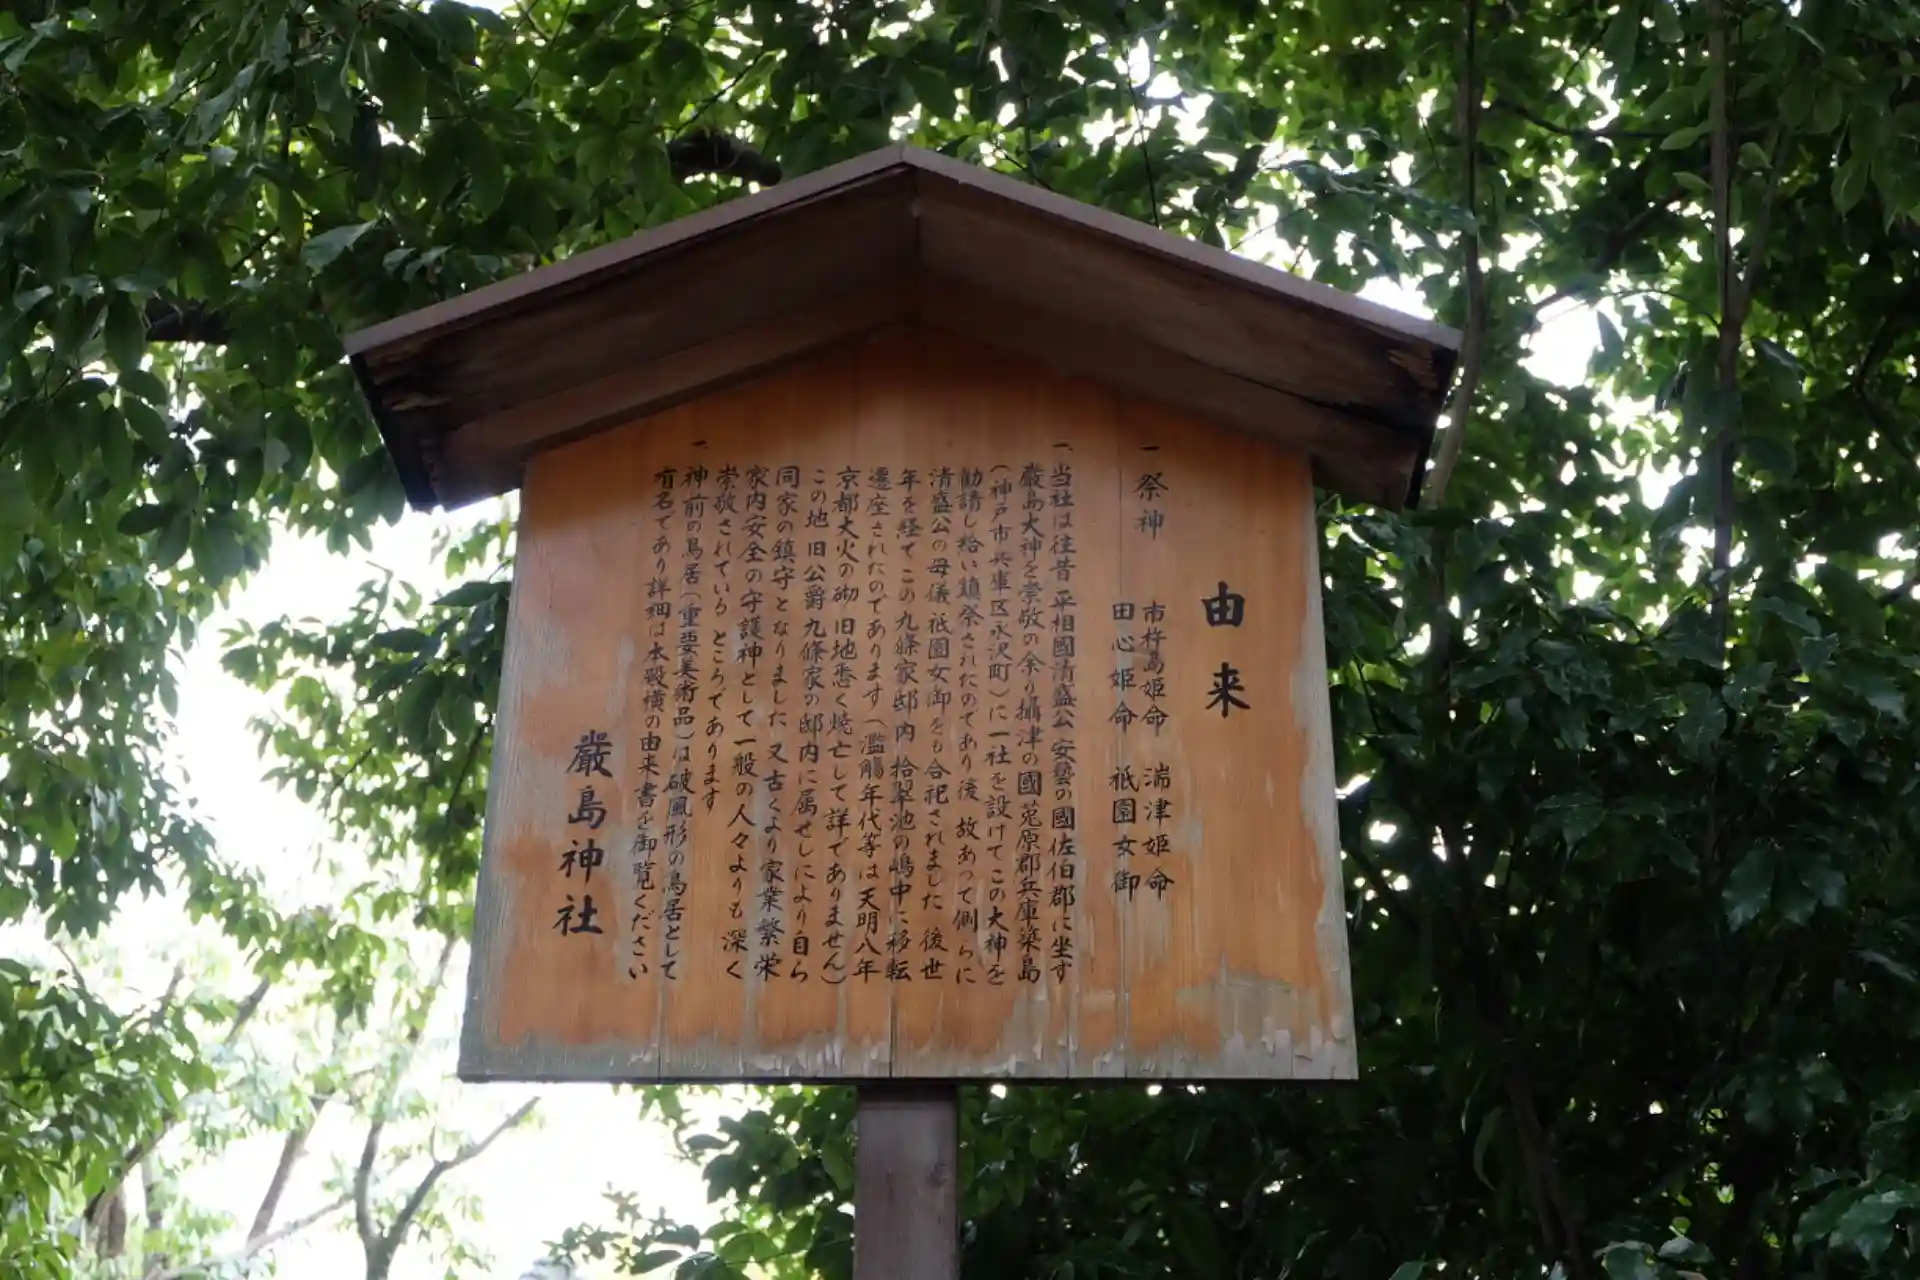 由来
一 祭神 市杵島姫命 湍津姫命
田心姫命 祇園女御
一、当社は往昔 平相國清盛公 安藝の國佐伯郡に坐す
厳島大神を崇敬の余り攝津の國菟原郡兵庫築島
(神戸市兵庫区永沢町)に一社を設けてこの大神を
勧請し給い鎮祭されたのであり後 故あって側らに
清盛公の母儀祇園女御をも合祀されました 後世
年を経てこの九條家邸内 拾翠池の嶋中に移転
遷座されたのであります(濫觴年代等は天明八年
京都大火の砌 旧地悉く焼亡して詳でありません)
この地 旧公爵九條家の邸内に属せしにより自ら
同家の鎮守となりました 又古くより家業繁栄
家内安全の守護神として一般の人々よりも深く
崇敬されている ところであります
一、神前の鳥居(重要美術品)は破風形の鳥居として
有名であり詳細は本殿横の由来書を御覧ください
厳島神社